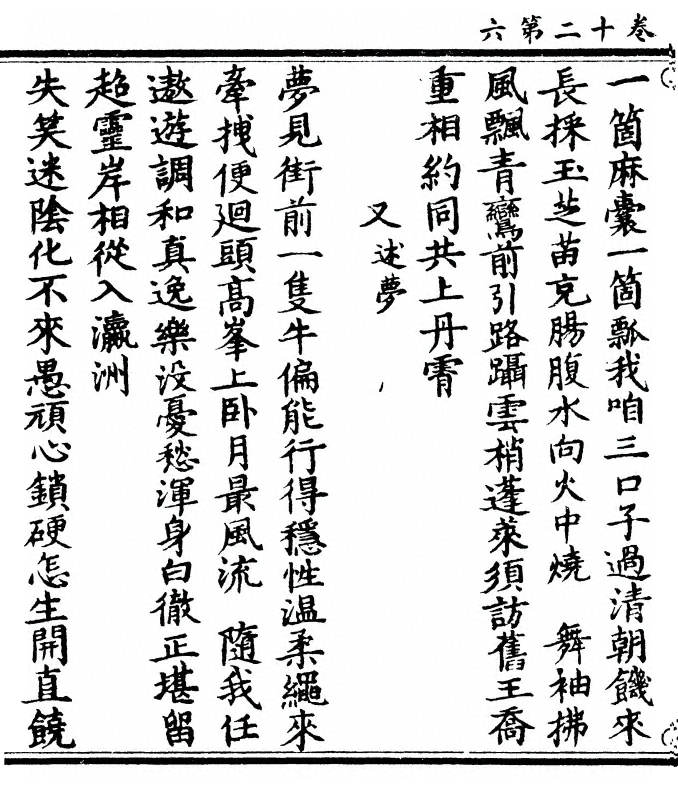 卷十二第六
一箇麻囊一箇瓢我咱三口子過清朝饑來
長採玉芝苗充腸腹水向火中燒　舞袖拂
風飄青鸞前引路躡雲梢蓬萊須訪舊王喬
重相約同共上丹霄
又述夢
夢見街前一隻牛偏能行得穩性温柔繩來
牽拽便廻頭髙峯上卧月最風流　隨我任
遨遊調和真逸樂没憂愁渾身白徹正堪留
超靈岸相從入瀛洲
失笑迷隂化不來愚頑心鎖硬怎生開直饒